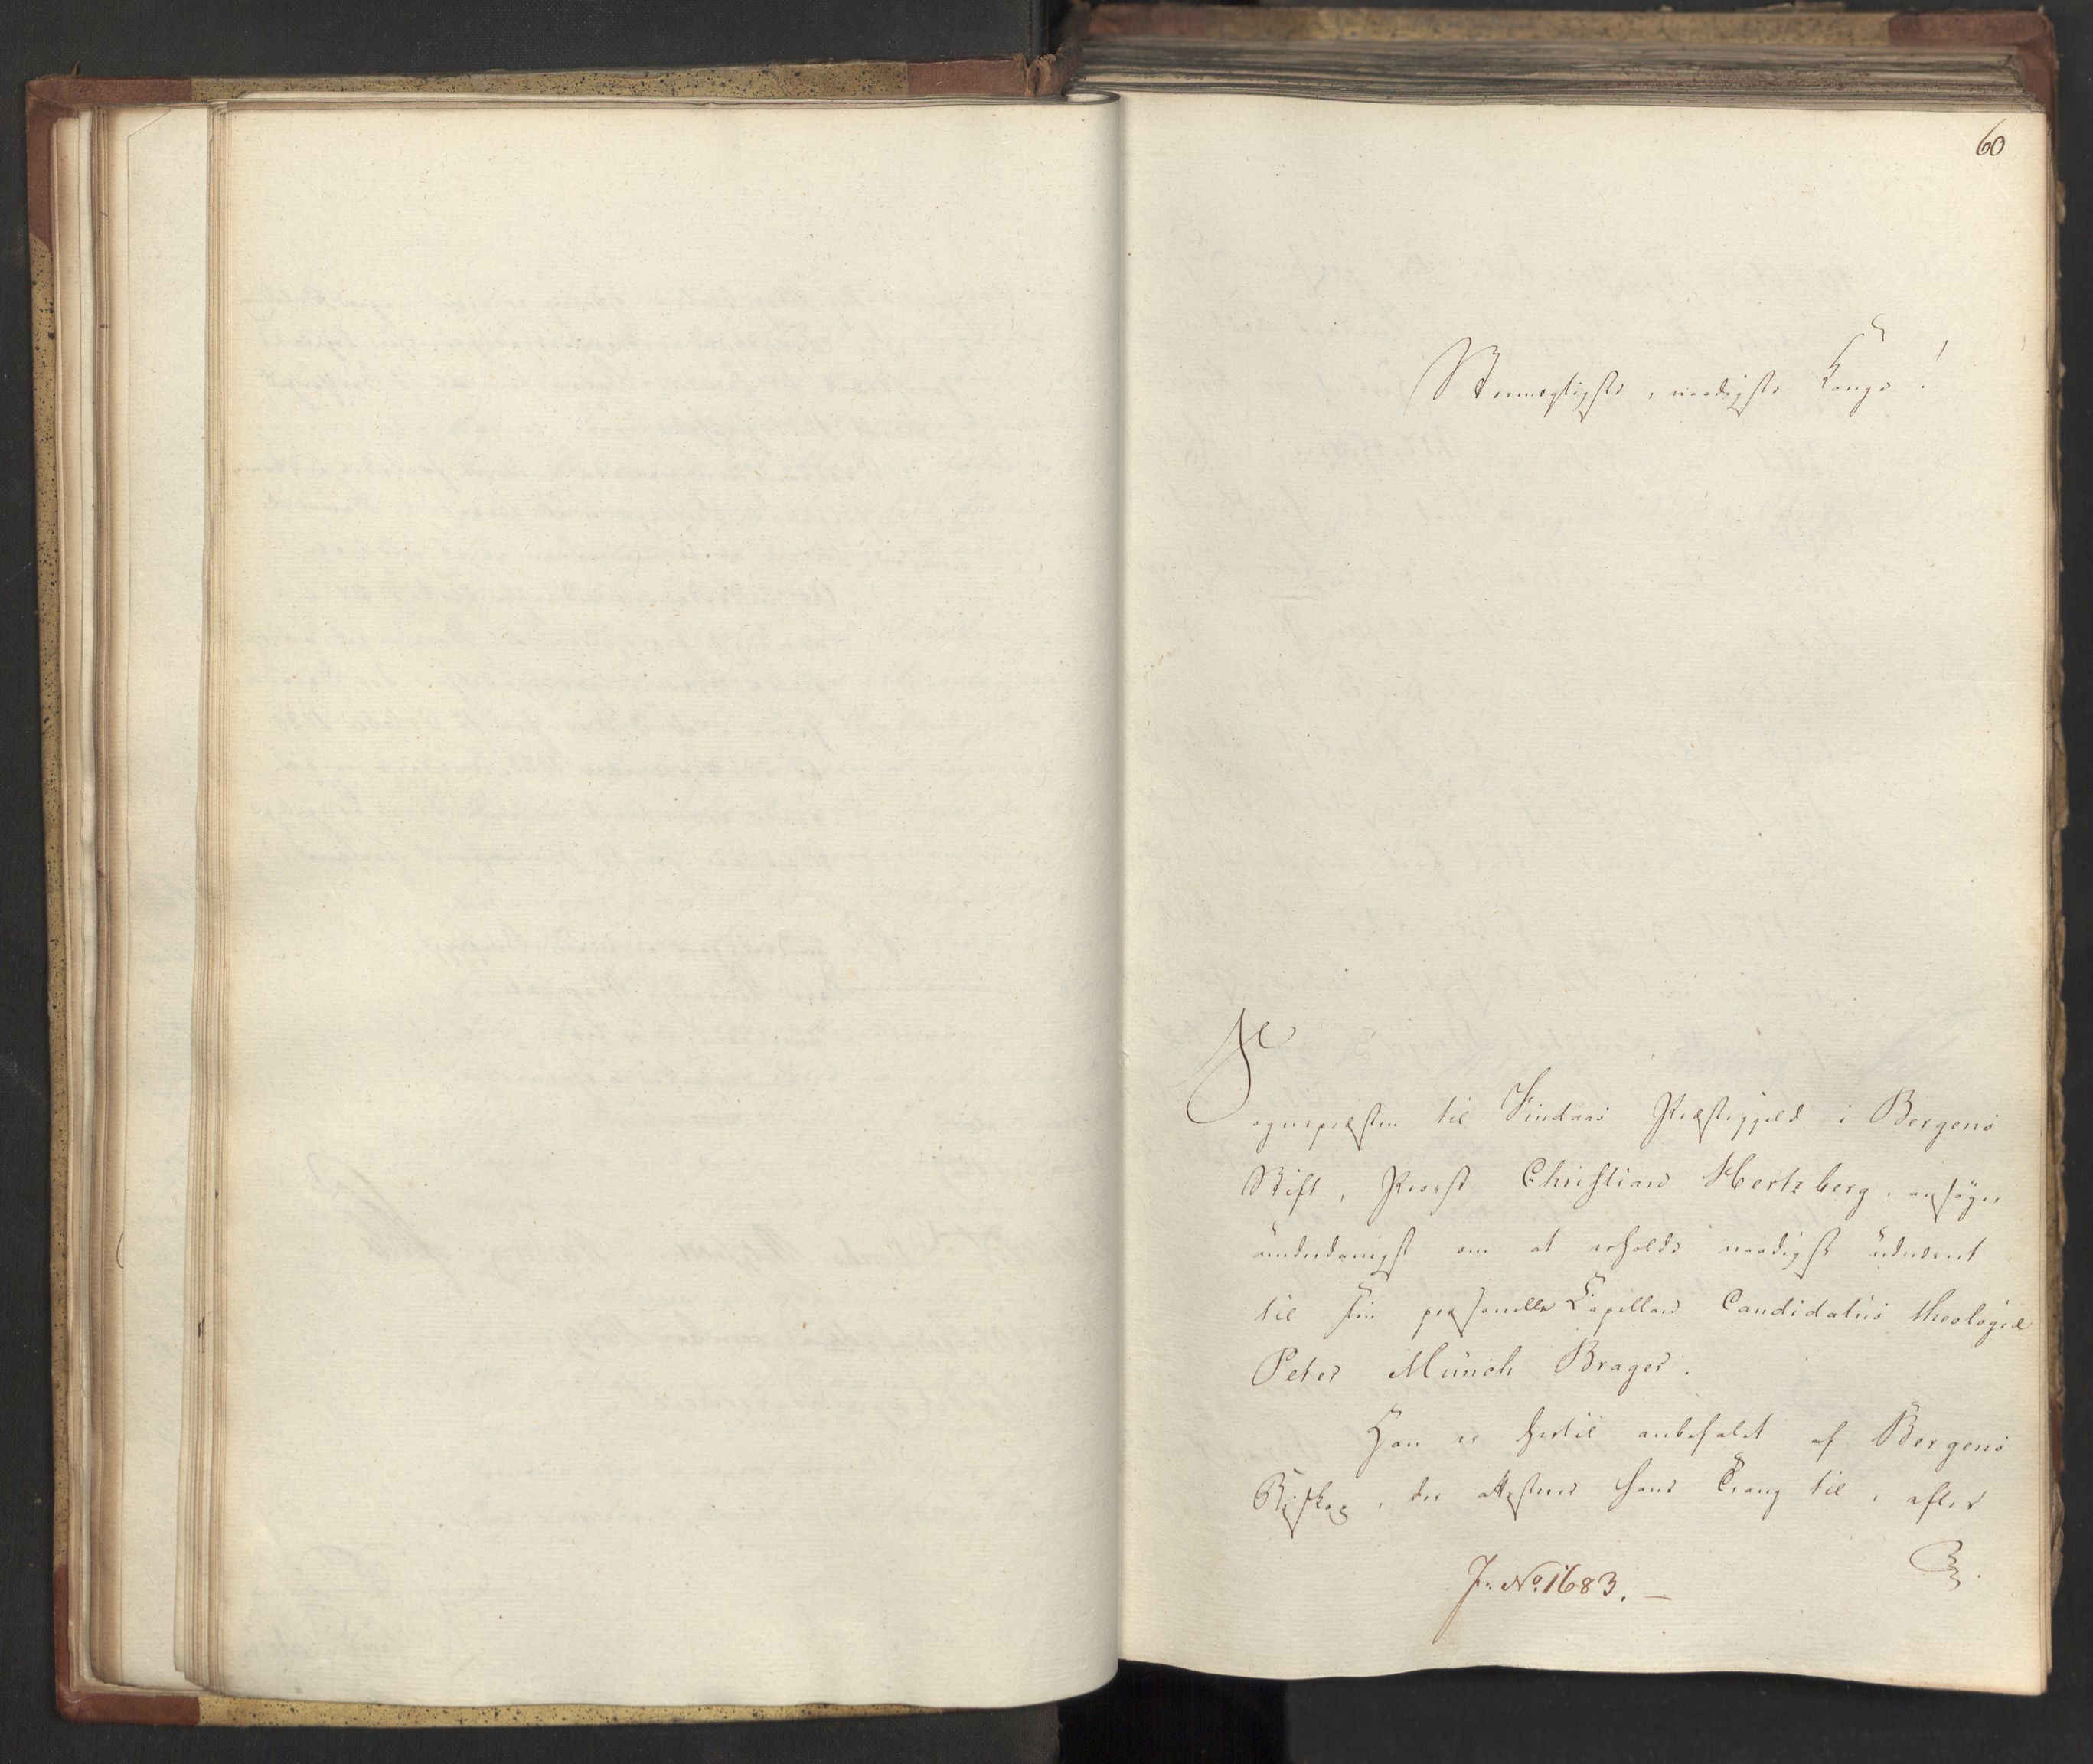 60
Stormægtigste, naadigste Konge!
Sognepræsten til Findaas Præstegjeld i Bergens
Stift, Provst Christian Hertzberg, ansøger
underdanigst om at erholde naadigst udnævnt
til sin personelle Capellan Candidatus theologiæ
Peter Münch Brager.
Han er hertil anbefalet af Bergens
Biskop, der attesterer hans Trang til, efter
J. No. 1683. —